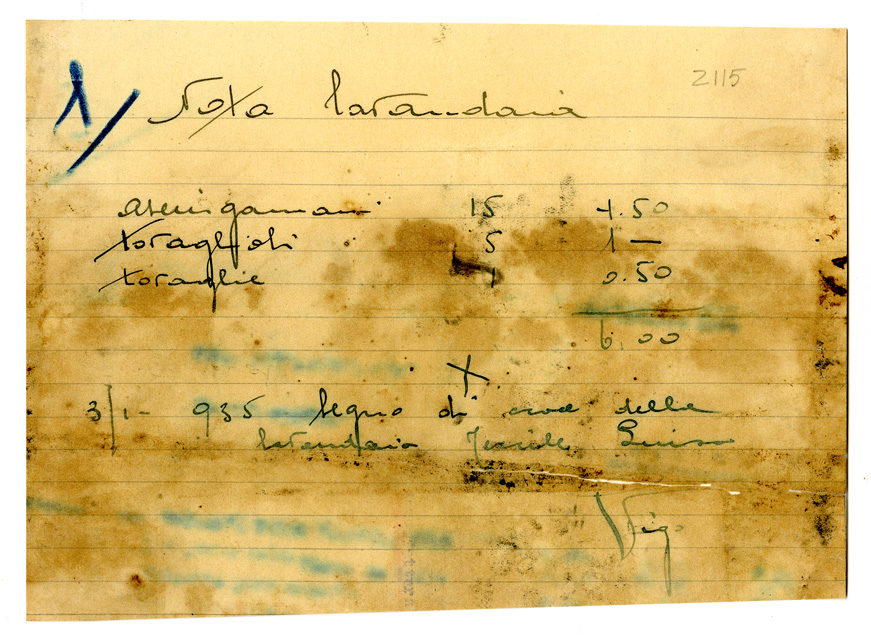 1/ Nota lavandaia
2115
asciugamani 15 4.50
tovaglioli 5 1 —
tovaglie 1 0.50
6.00
X
3/1- 935 segno di croce della
lavandaia Luisa